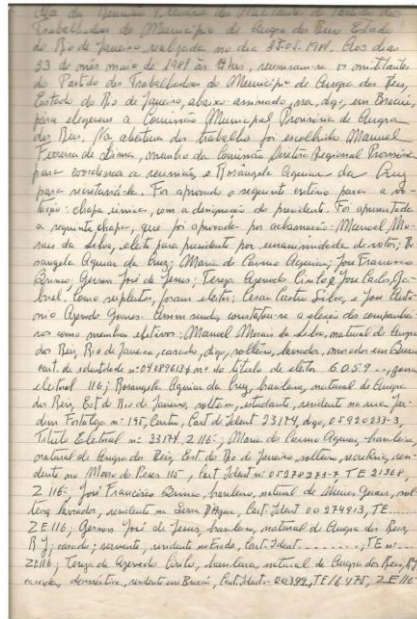 Ata da Reunião Plenária dos Militantes do Partido dos
Trabalhadores do Município de Angra dos Reis Estado
do Rio de Janeiro, realizada no dia 23.05.1981. Aos dias
23 do mês maio de 1981 às hrs, reuniram-se os militantes
do Partido dos Trabalhadores do Município de Angra dos Reis,
Estado do Rio de Janeiro, abaixo assinado, na, digo, em Bracuí
para elegerem a Comissão Municipal Provisória de Angra
dos Reis. Na abertura dos trabalho foi escolhido Manuel
Ferreira de Lima, membro da Comissão Diretora Regional Provisória
para coordenar a reunião, e Rosangela Aguiar da Cruz
para secretariá-la. Foi aprovado o seguinte critério para a vo
tação: chapa única, com a designação do presidente. Foi apresentada
a seguinte chapa, que foi aprovada por aclamação: Manoel Mo-
rais da Silva, eleito para presidente por unanimidade de votos; Ro
sangela Aguiar da Cruz; Maria do Carmo Aguiar; José Francisco
Bruno; Gerson José de Jesus; Tereza Azevedo Cirilo; José Carlos Ga-
briel. Como suplentes, foram eleitos: Cesar Castro Silva, e José Antô
nio Azevedo Gomes. Assim sendo, constatou-se a eleição dos companhei
ros como membros efetivos: Manoel Morais da Silva, natural de Angra
dos Reis, Rio de Janeiro, casado, digo, solteiro, lavrador, morador em Bracuí
cart. de identidade nº nº do título de eleitor 6.059 , zona
eleitoral 116; Rosangela Aguiar da Cruz, brasileira, natural de Angra
dos Reis, Est do Rio de Janeiro, solteira, estudante, residente na rua
nº 195, Centro, Cart de Ident 23174, digo, 05920233-3,
Título Eleitoral nº 33174, Z 116; Maria do Carmo Aguiar, brasileira,
natural de Angra dos Reis, Est do Rio de Janeiro, solteira, secretária, resi-
dente no Morro do Peres 115, Cart Ident nº 05278273-7, TE 21368,
Z 116; José Francisco Bruno, brasileiro, natural de Minas Gerais, sol
teiro, lavrador, residente na Serra D'Água, Cart. Ident 00274913, TE
ZE 116, Gerson José de Jesus, brasileiro, natural de Angra dos Reis,
RJ; casado; servente, residente, Cart. Ident........., TE nº.....
ZE 116; Tereza de Azevedo Cirilo, brasileira, natural de Angra dos Reis, RJ
casada, doméstica, residente em Bracuí, Cart. Ident. 00392, TE 16475, ZE 116